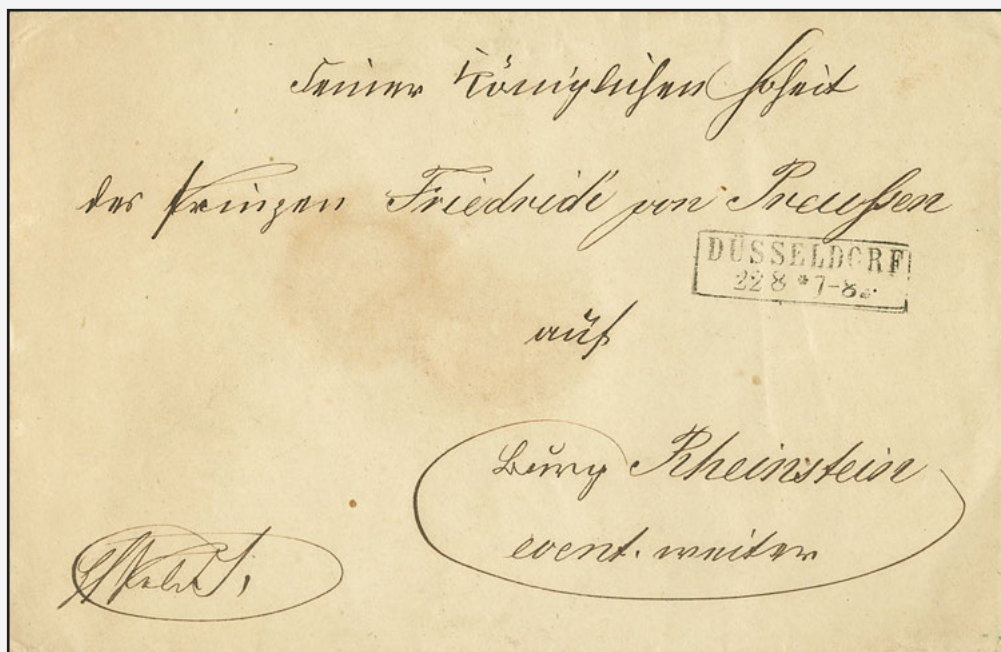 Seiner Königlichen Hoheit
des Prinzen Friedrich von Preußen
DÜSSELDORF
22 8 * 7-8
auf
Burg Rheinstein
event. weiter